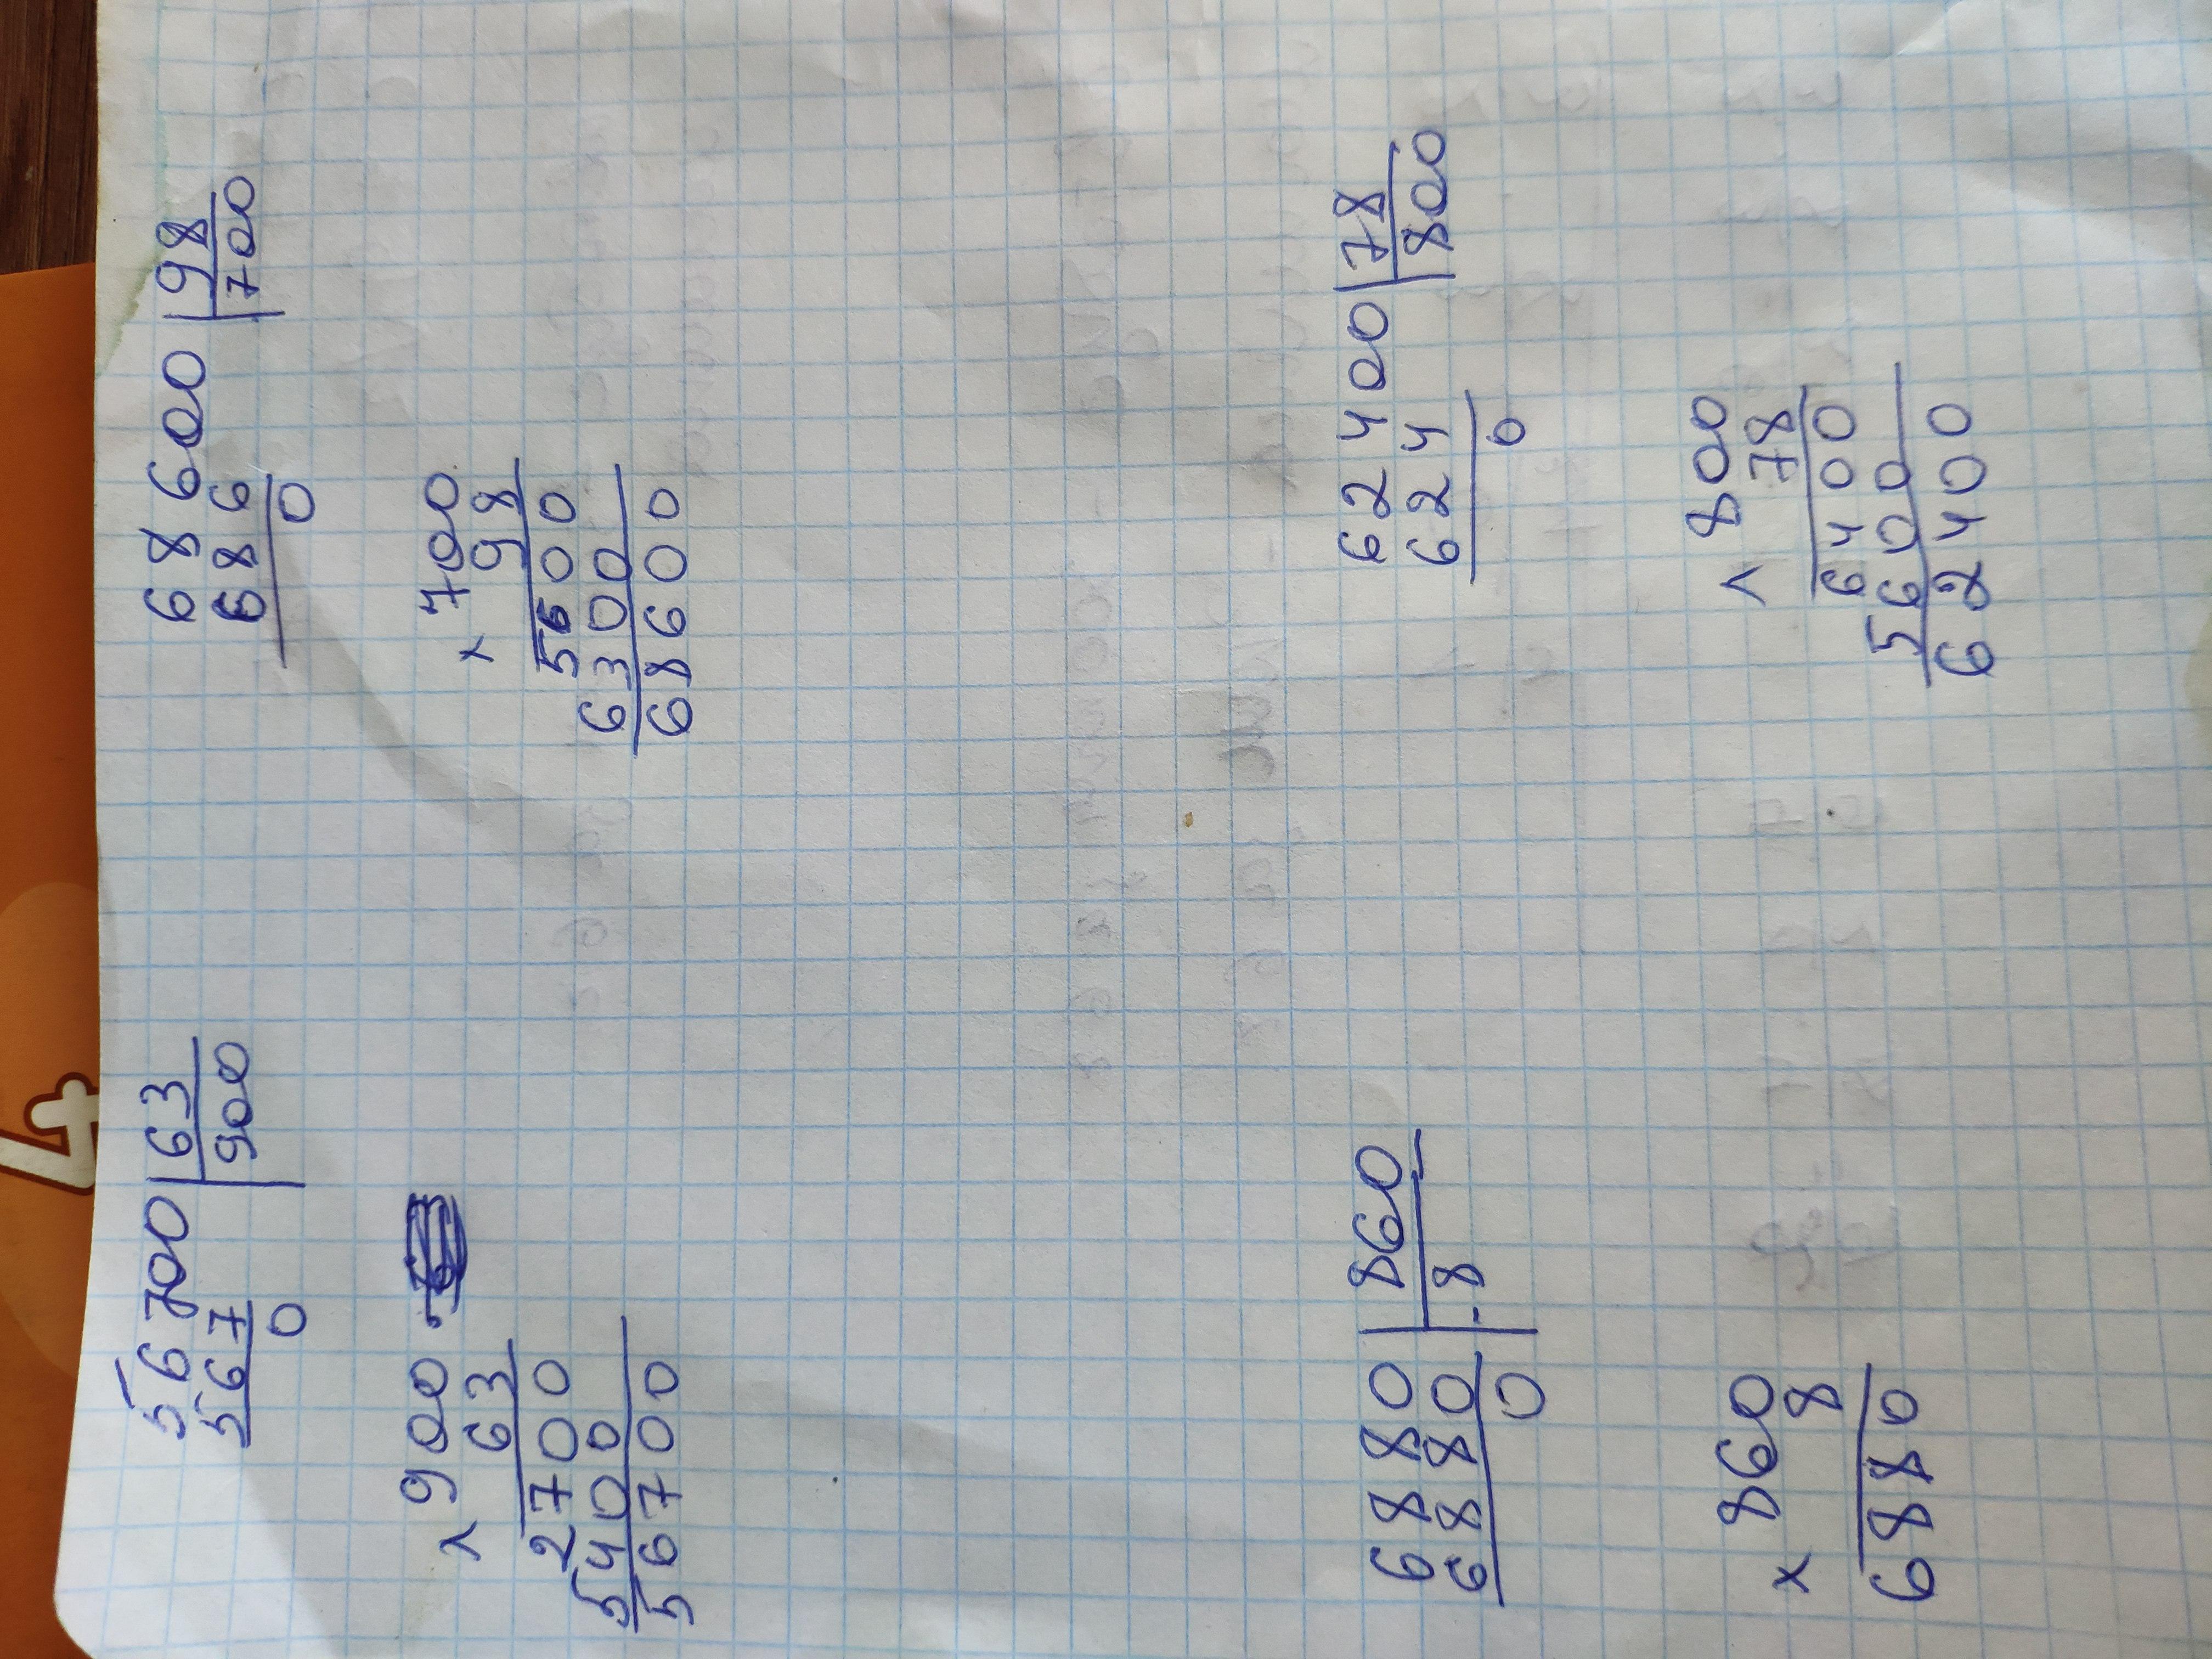 56700 | 63
567 | 900
0
× 900
63
2700
5400
56700
68600 | 98
686 | 700
0
× 700
98
5600
6300
68600
6880 | 860
6880 | 8
0
× 860
8
6880
62400 | 78
624 | 800
0
× 800
78
6400
5600
62400
4